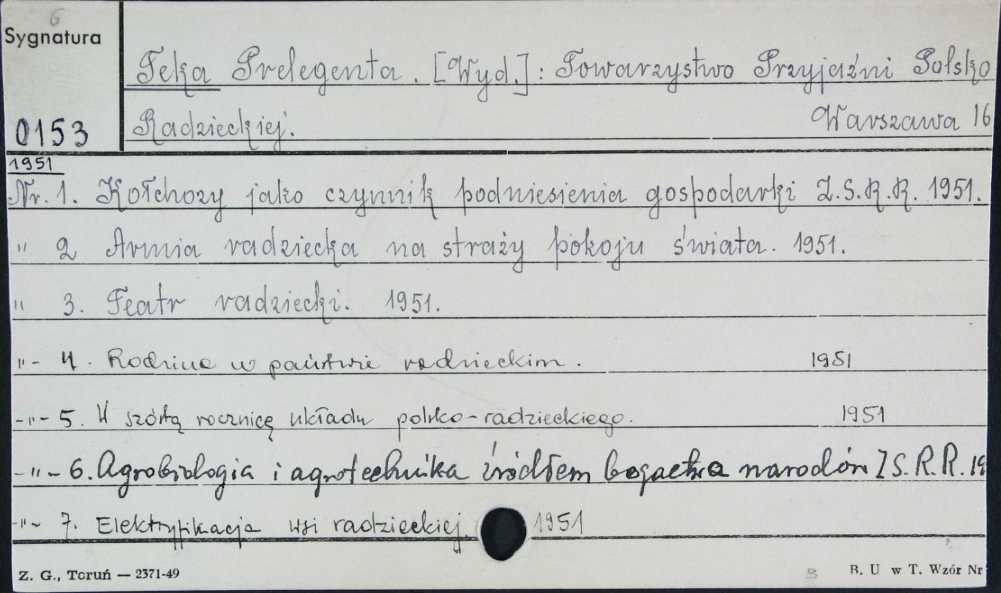 6
Sygnatura
Teka Prelegenta. [Wyd.]: Towarzystwo Przyjaźni Polsko
0153 Radzieckiej. Warszawa 16
1951
Nr. 1. Kołchozy jako czynnik podniesienia gospodarki Z.S.R.R. 1951.
" 2 Armia radziecka na straży pokoju świata. 1951.
" 3. Teatr radziecki. 1951.
"- 4. Rodzina w państwie radzieckim. 1951
-"- 5. W szóstą rocznicę układu polsko-radzieckiego. 1951
-"- 6. Agrobiologia i agrotechnika źródłem bogactwa narodów Z S. R. R. 19
-"- 7. Elektryfikacja wsi radzieckiej. 1951
Z. G., Toruń — 2371-49 B. U w T. Wzór Nr